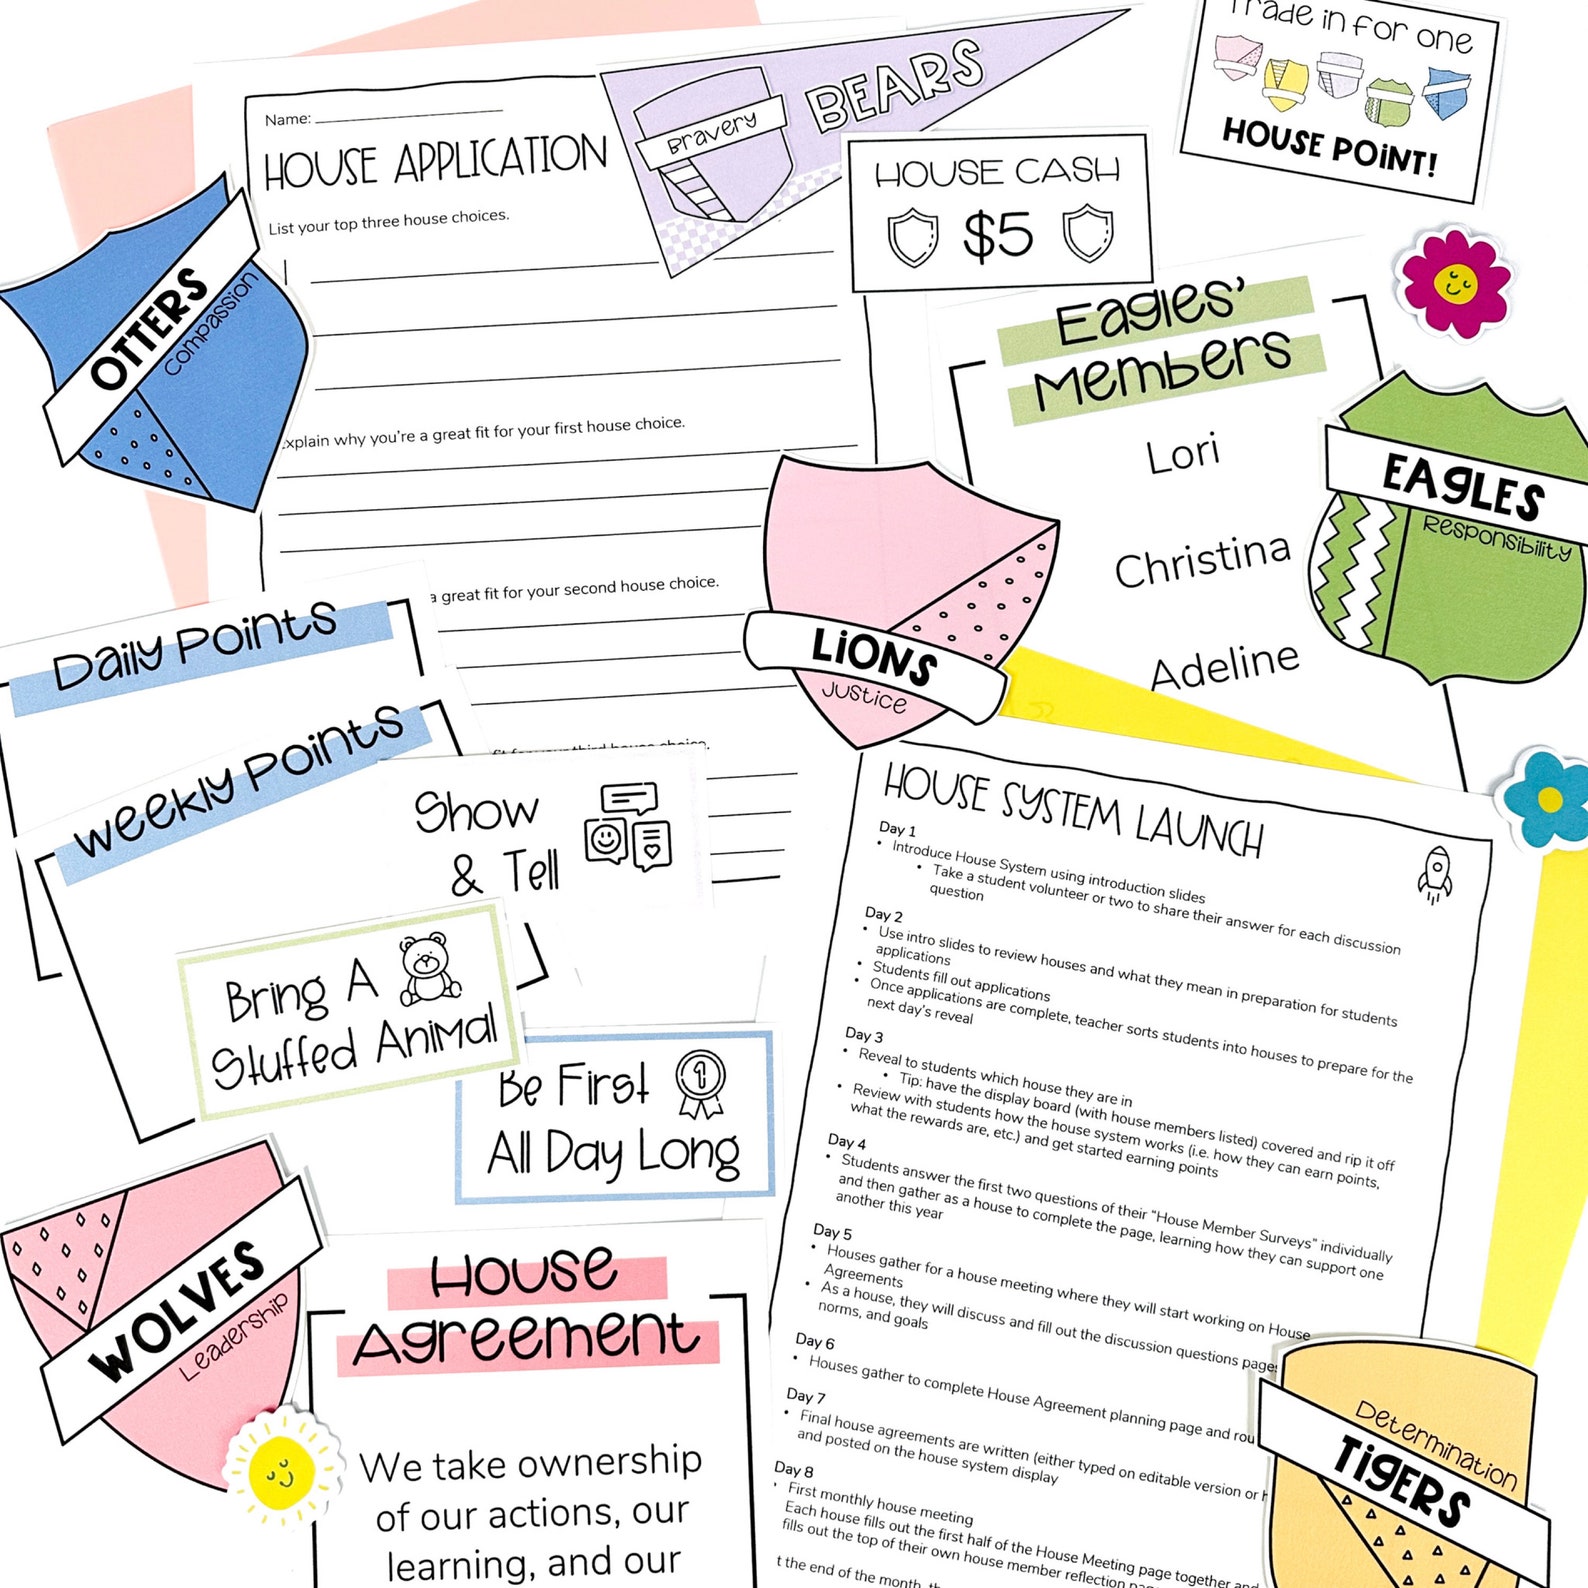 Trade in for one
HOUSE POINT!
BEARS
Bravery
HOUSE CASH
$5
Name:
HOUSE APPLICATION
List your top three house choices.
explain why you're a great fit for your first house choice.
a great fit for your second house choice.
fit for your third house choice.
OTTERS
Compassion
Eagles'
Members
Lori
Christina
Adeline
EAGLES
Responsibility
LIONS
Justice
Daily Points
Weekly Points
Show
& Tell
Bring A
Stuffed Animal
Be First
All Day Long
WOLVES
Leadership
House
Agreement
We take ownership
of our actions, our
learning, and our
HOUSE SYSTEM LAUNCH
Day 1
• Introduce House System using introduction slides
• Take a student volunteer or two to share their answer for each discussion
question
Day 2
• Use intro slides to review houses and what they mean in preparation for students
applications
• Students fill out applications
• Once applications are complete, teacher sorts students into houses to prepare for the
next day's reveal
Day 3
• Reveal to students which house they are in
• Tip: have the display board (with house members listed) covered and rip it off
• Review with students how the house system works (i.e. how they can earn points,
what the rewards are, etc.) and get started earning points
Day 4
• Students answer the first two questions of their "House Member Surveys" individually
and then gather as a house to complete the page, learning how they can support one
another this year
Day 5
• Houses gather for a house meeting where they will start working on House
Agreements
• As a house, they will discuss and fill out the discussion questions page
norms, and goals
Day 6
• Houses gather to complete House Agreement planning page and rou
Day 7
• Final house agreements are written (either typed on editable version or
and posted on the house system display
Day 8
• First monthly house meeting
Each house fills out the first half of the House Meeting page together and
fills out the top of their own house member reflection
t the end of the month
Determination
TIGERS